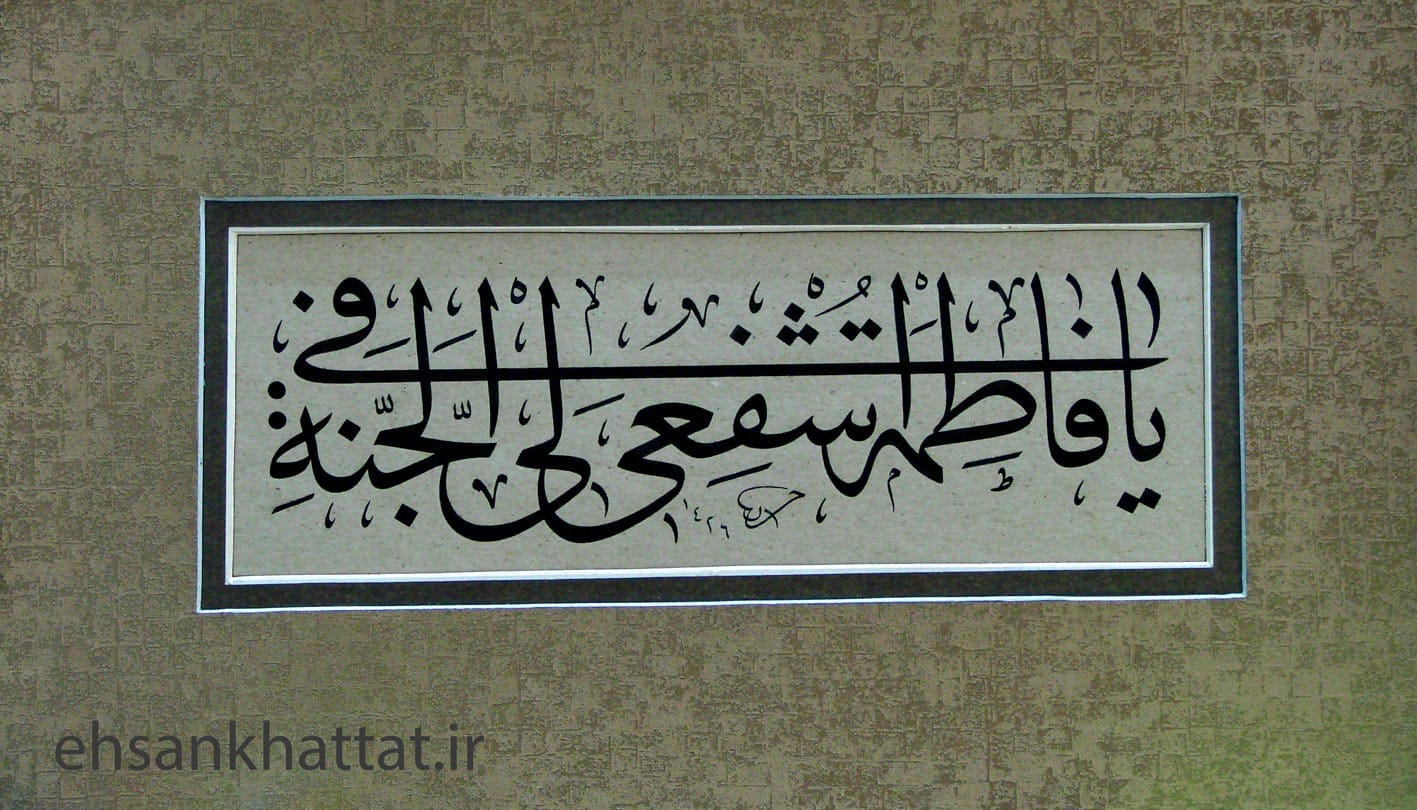 يا فاطمة اشفعي لي في الجنة
١٤٢٦
ehsankhattat.ir